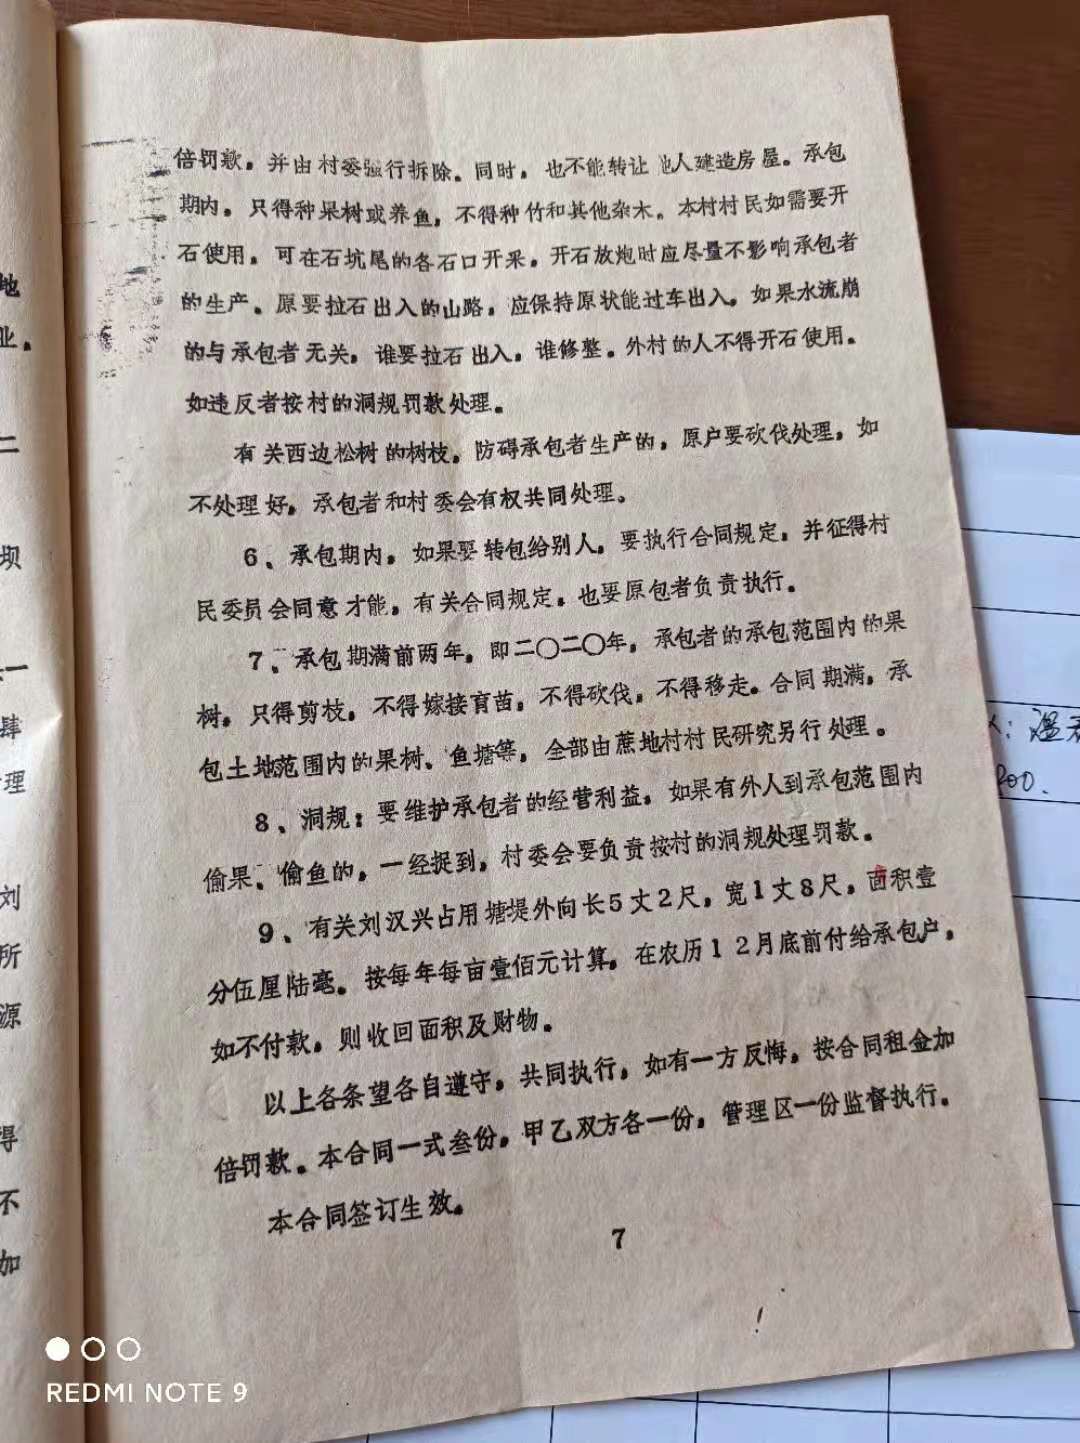 倍罚款，并由村委强行拆除。同时，也不能转让他人建造房屋。承包
期内，只得种果树或养鱼，不得种竹和其他杂木。本村村民如需要开
石使用，可在石坑尾的各石口开采，开石放炮时应尽量不影响承包者
的生产。原要拉石出入的山路，应保持原状能过车出入，如果水流崩
的与承包者无关，谁要拉石出入，谁修整。外村的人不得开石使用。
如违反者按村的洞规罚款处理。
有关西边松树的树枝，防碍承包者生产的，原户要砍伐处理，如
不处理好，承包者和村委会有权共同处理。
6、承包期内，如果要转包给别人，要执行合同规定，并征得村
民委员会同意才能，有关合同规定，也要原包者负责执行。
7、承包期满前两年，即二〇二〇年，承包者的承包范围内的果
树，只得剪枝，不得嫁接育苗，不得砍伐，不得移走。合同期满，承
包土地范围内的果树、鱼塘等，全部由蔗地村村民研究另行处理。
8、洞规：要维护承包者的经营利益，如果有外人到承包范围内
偷果、偷鱼的，一经捉到，村委会要负责按村的洞规处理罚款。
9、有关刘汉兴占用塘堤外向长5丈2尺，宽1丈8尺，面积壹
分伍厘陆毫。按每年每亩壹佰元计算，在农历12月底前付给承包户，
如不付款，则收回面积及财物。
以上各条望各自遵守，共同执行，如有一方反悔，按合同租金加
倍罚款。本合同一式叁份，甲乙双方各一份，管理区一份监督执行。
本合同签订生效。
7
地
业。
二
坝
一
肆
理
刘
所
源
得
不
加
REDMI NOTE 9